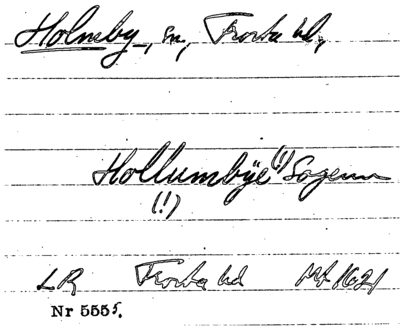 Holmsby, sn, Frosta hd,
Hollumbÿe (!) Sogenn
(!)
LR Frosta hd Mt 1621
Nr 5555.